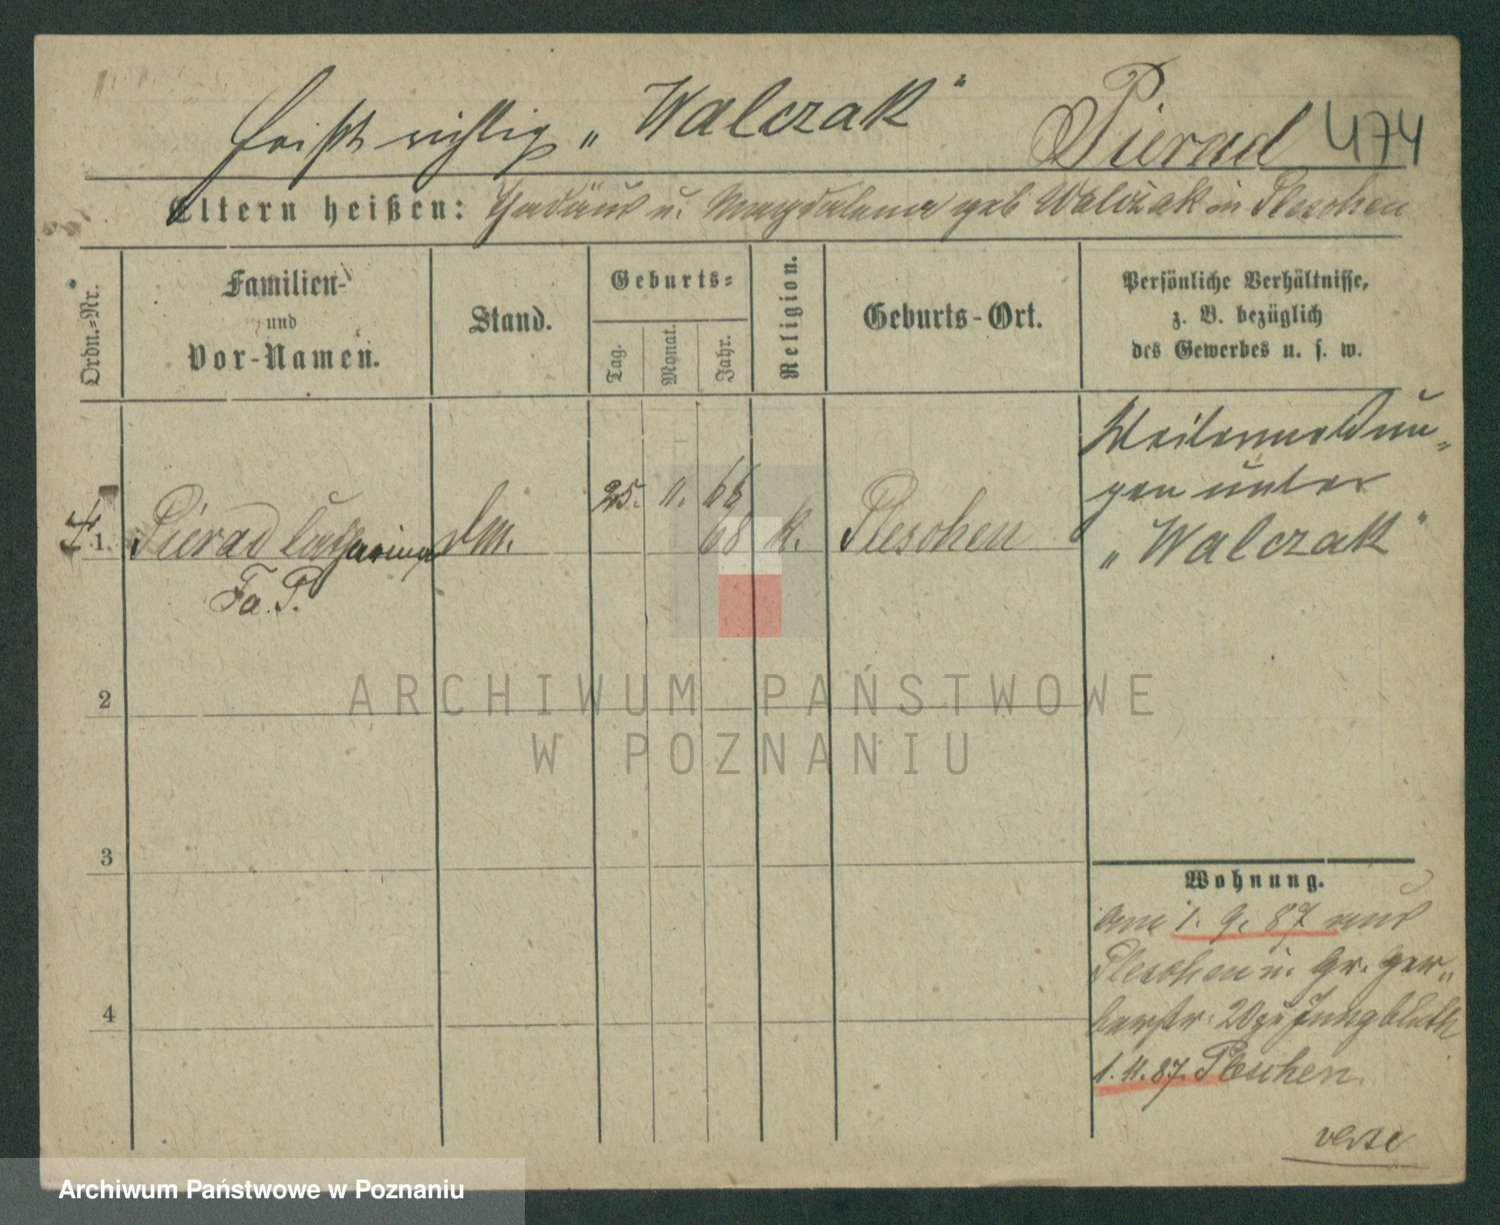 heißt richtig „Walczak" Pierad 474
Eltern heißen: Thadäus u. Magdalena geb Walczak in Pleschen
Ordn.=Nr.
Familien-
und
Vor-Namen.
Stand.
Geburts=
Tag.
Monat.
Jahr.
Religion.
Geburts-Ort.
Persönliche Verhältnisse,
z. B. bezüglich
des Gewerbes u. s. w.
Weitermeldun=
gen unter
„Walczak"
1. Pierad Catharina 25. 11. 66 k. Pleschen
68
Fa. P.
2
3
4
Wohnung.
am 1. 9. 87 aus
Pleschen n. Gr. Ger=
berstr. 20 zu Jungbluth
1. 11. 87. Pleschen.
verte
ARCHIWUM PAŃSTWOWE
W POZNANIU
Archiwum Państwowe w Poznaniu